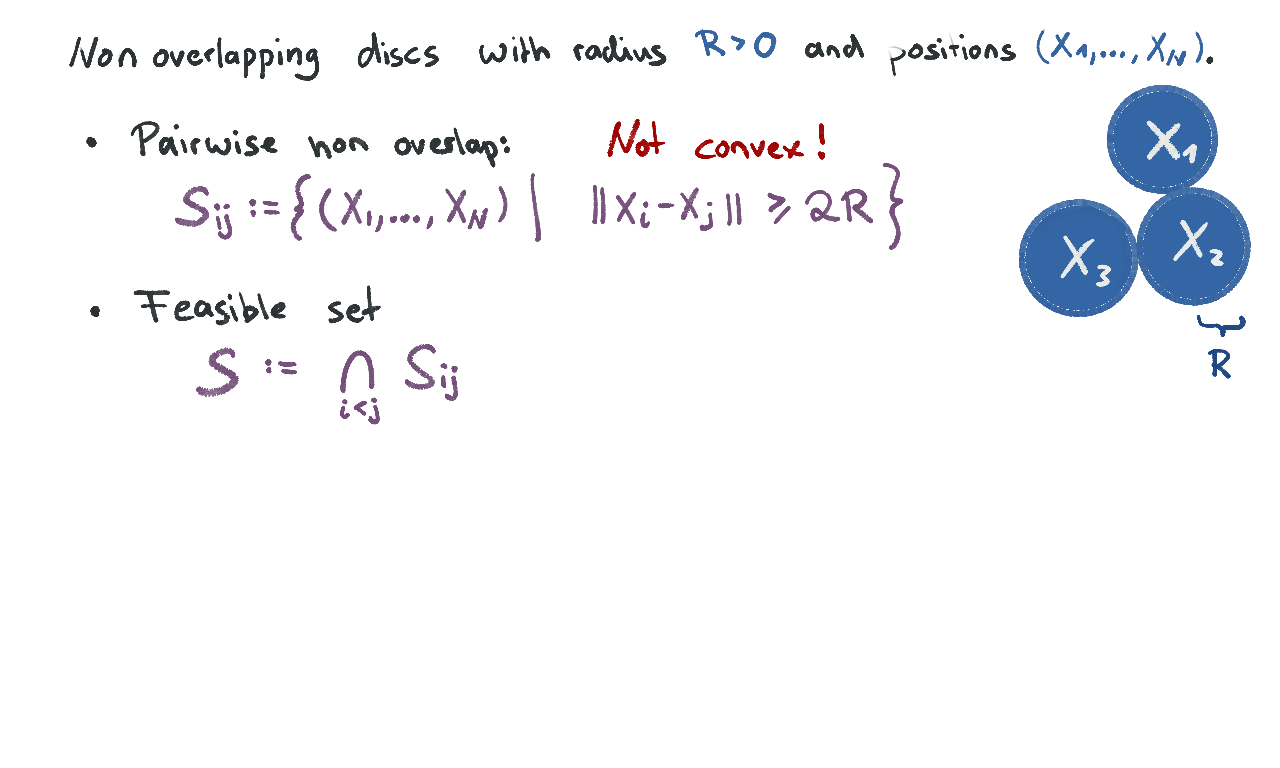 Non overlapping discs with radius R > 0 and positions (X₁,..., X_N).
• Pairwise non overlap: Not convex!
S_ij := {(X₁,..., X_N) | ||X_i - X_j|| ≥ 2R}
• Feasible set
S := ⋂_{i<j} S_ij
X₁
X₂
X₃
R